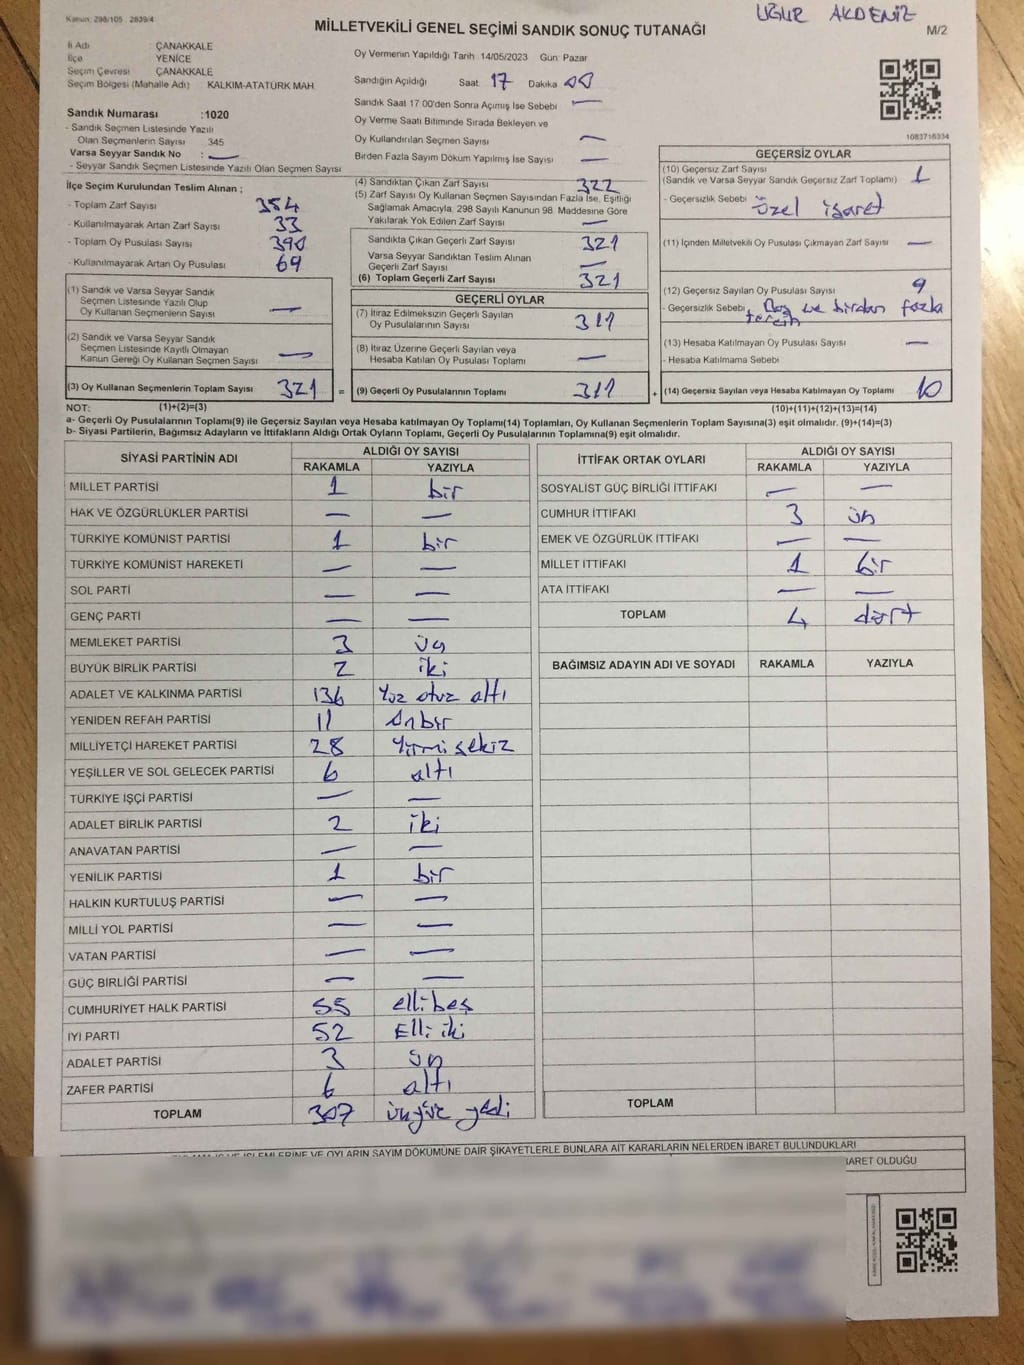 Kanun: 298/105 2839/4
UĞUR AKDENİZ
MİLLETVEKİLİ GENEL SEÇİMİ SANDIK SONUÇ TUTANAĞI
M/2
İl Adı ÇANAKKALE
İlçe YENİCE
Seçim Çevresi ÇANAKKALE
Seçim Bölgesi (Mahalle Adı) KALKIM-ATATÜRK MAH
Sandık Numarası :1020
- Sandık Seçmen Listesinde Yazılı
Olan Seçmenlerin Sayısı 345
Varsa Seyyar Sandık No : —
- Seyyar Sandık Seçmen Listesinde Yazılı Olan Seçmen Sayısı
Oy Vermenin Yapıldığı Tarih 14/05/2023 Gün: Pazar
Sandığın Açıldığı Saat 17 Dakika 00
Sandık Saat 17:00'den Sonra Açılmış İse Sebebi —
Oy Verme Saati Bitiminde Sırada Bekleyen ve
Oy Kullandırılan Seçmen Sayısı —
Birden Fazla Sayım Döküm Yapılmış İse Sayısı —
1083716334
İlçe Seçim Kurulundan Teslim Alınan ;
- Toplam Zarf Sayısı 354
- Kullanılmayarak Artan Zarf Sayısı 33
- Toplam Oy Pusulası Sayısı 390
- Kullanılmayarak Artan Oy Pusulası 69
(1) Sandık ve Varsa Seyyar Sandık
Seçmen Listesinde Yazılı Olup
Oy Kullanan Seçmenlerin Sayısı —
(2) Sandık ve Varsa Seyyar Sandık
Seçmen Listesinde Kayıtlı Olmayan
Kanun Gereği Oy Kullanan Seçmen Sayısı —
(3) Oy Kullanan Seçmenlerin Toplam Sayısı 321 =
(4) Sandıktan Çıkan Zarf Sayısı 322
(5) Zarf Sayısı Oy Kullanan Seçmen Sayısından Fazla İse, Eşitliği
Sağlamak Amacıyla, 298 Sayılı Kanunun 98. Maddesine Göre
Yakılarak Yok Edilen Zarf Sayısı —
Sandıkta Çıkan Geçerli Zarf Sayısı 321
Varsa Seyyar Sandıktan Teslim Alınan
Geçerli Zarf Sayısı —
(6) Toplam Geçerli Zarf Sayısı 321
GEÇERLİ OYLAR
(7) İtiraz Edilmeksizin Geçerli Sayılan
Oy Pusulalarının Sayısı 311
(8) İtiraz Üzerine Geçerli Sayılan veya
Hesaba Katılan Oy Pusulası Toplamı —
(9) Geçerli Oy Pusulalarının Toplamı 311 +
GEÇERSİZ OYLAR
(10) Geçersiz Zarf Sayısı
(Sandık ve Varsa Seyyar Sandık Geçersiz Zarf Toplamı) 1
- Geçersizlik Sebebi özel işaret
(11) İçinden Milletvekili Oy Pusulası Çıkmayan Zarf Sayısı —
(12) Geçersiz Sayılan Oy Pusulası Sayısı 9
- Geçersizlik Sebebi Boş ve birden fazla
tercih
(13) Hesaba Katılmayan Oy Pusulası Sayısı —
- Hesaba Katılmama Sebebi
(14) Geçersiz Sayılan veya Hesaba Katılmayan Oy Toplamı 10
NOT: (1)+(2)=(3) (10)+(11)+(12)+(13)=(14)
a- Geçerli Oy Pusulalarının Toplamı(9) ile Geçersiz Sayılan veya Hesaba katılmayan Oy Toplamı(14) Toplamları, Oy Kullanan Seçmenlerin Toplam Sayısına(3) eşit olmalıdır. (9)+(14)=(3)
b- Siyasi Partilerin, Bağımsız Adayların ve İttifakların Aldığı Ortak Oyların Toplamı, Geçerli Oy Pusulalarının Toplamına(9) eşit olmalıdır.
SİYASİ PARTİNİN ADI ALDIĞI OY SAYISI
RAKAMLA YAZIYLA
MİLLET PARTİSİ 1 bir
HAK VE ÖZGÜRLÜKLER PARTİSİ — —
TÜRKİYE KOMÜNİST PARTİSİ 1 bir
TÜRKİYE KOMÜNİST HAREKETİ — —
SOL PARTİ — —
GENÇ PARTİ — —
MEMLEKET PARTİSİ 3 üç
BÜYÜK BİRLİK PARTİSİ 2 iki
ADALET VE KALKINMA PARTİSİ 136 Yüz otuz altı
YENİDEN REFAH PARTİSİ 11 Onbir
MİLLİYETÇİ HAREKET PARTİSİ 28 Yirmi sekiz
YEŞİLLER VE SOL GELECEK PARTİSİ 6 altı
TÜRKİYE İŞÇİ PARTİSİ — —
ADALET BİRLİK PARTİSİ 2 iki
ANAVATAN PARTİSİ — —
YENİLİK PARTİSİ 1 bir
HALKIN KURTULUŞ PARTİSİ — —
MİLLİ YOL PARTİSİ — —
VATAN PARTİSİ — —
GÜÇ BİRLİĞİ PARTİSİ — —
CUMHURİYET HALK PARTİSİ 55 elli beş
İYİ PARTİ 52 Elli iki
ADALET PARTİSİ 3 üç
ZAFER PARTİSİ 6 altı
TOPLAM 307 üçyüz yedi
İTTİFAK ORTAK OYLARI ALDIĞI OY SAYISI
RAKAMLA YAZIYLA
SOSYALİST GÜÇ BİRLİĞİ İTTİFAKI — —
CUMHUR İTTİFAKI 3 üç
EMEK VE ÖZGÜRLÜK İTTİFAKI — —
MİLLET İTTİFAKI 1 bir
ATA İTTİFAKI — —
TOPLAM 4 dört
BAĞIMSIZ ADAYIN ADI VE SOYADI RAKAMLA YAZIYLA
TOPLAM
İŞLEMLERİNE VE OYLARIN SAYIM DÖKÜMÜNE DAİR ŞİKAYETLERLE BUNLARA AİT KARARLARIN NELERDEN İBARET BULUNDUKLARI
İBARET OLDUĞU